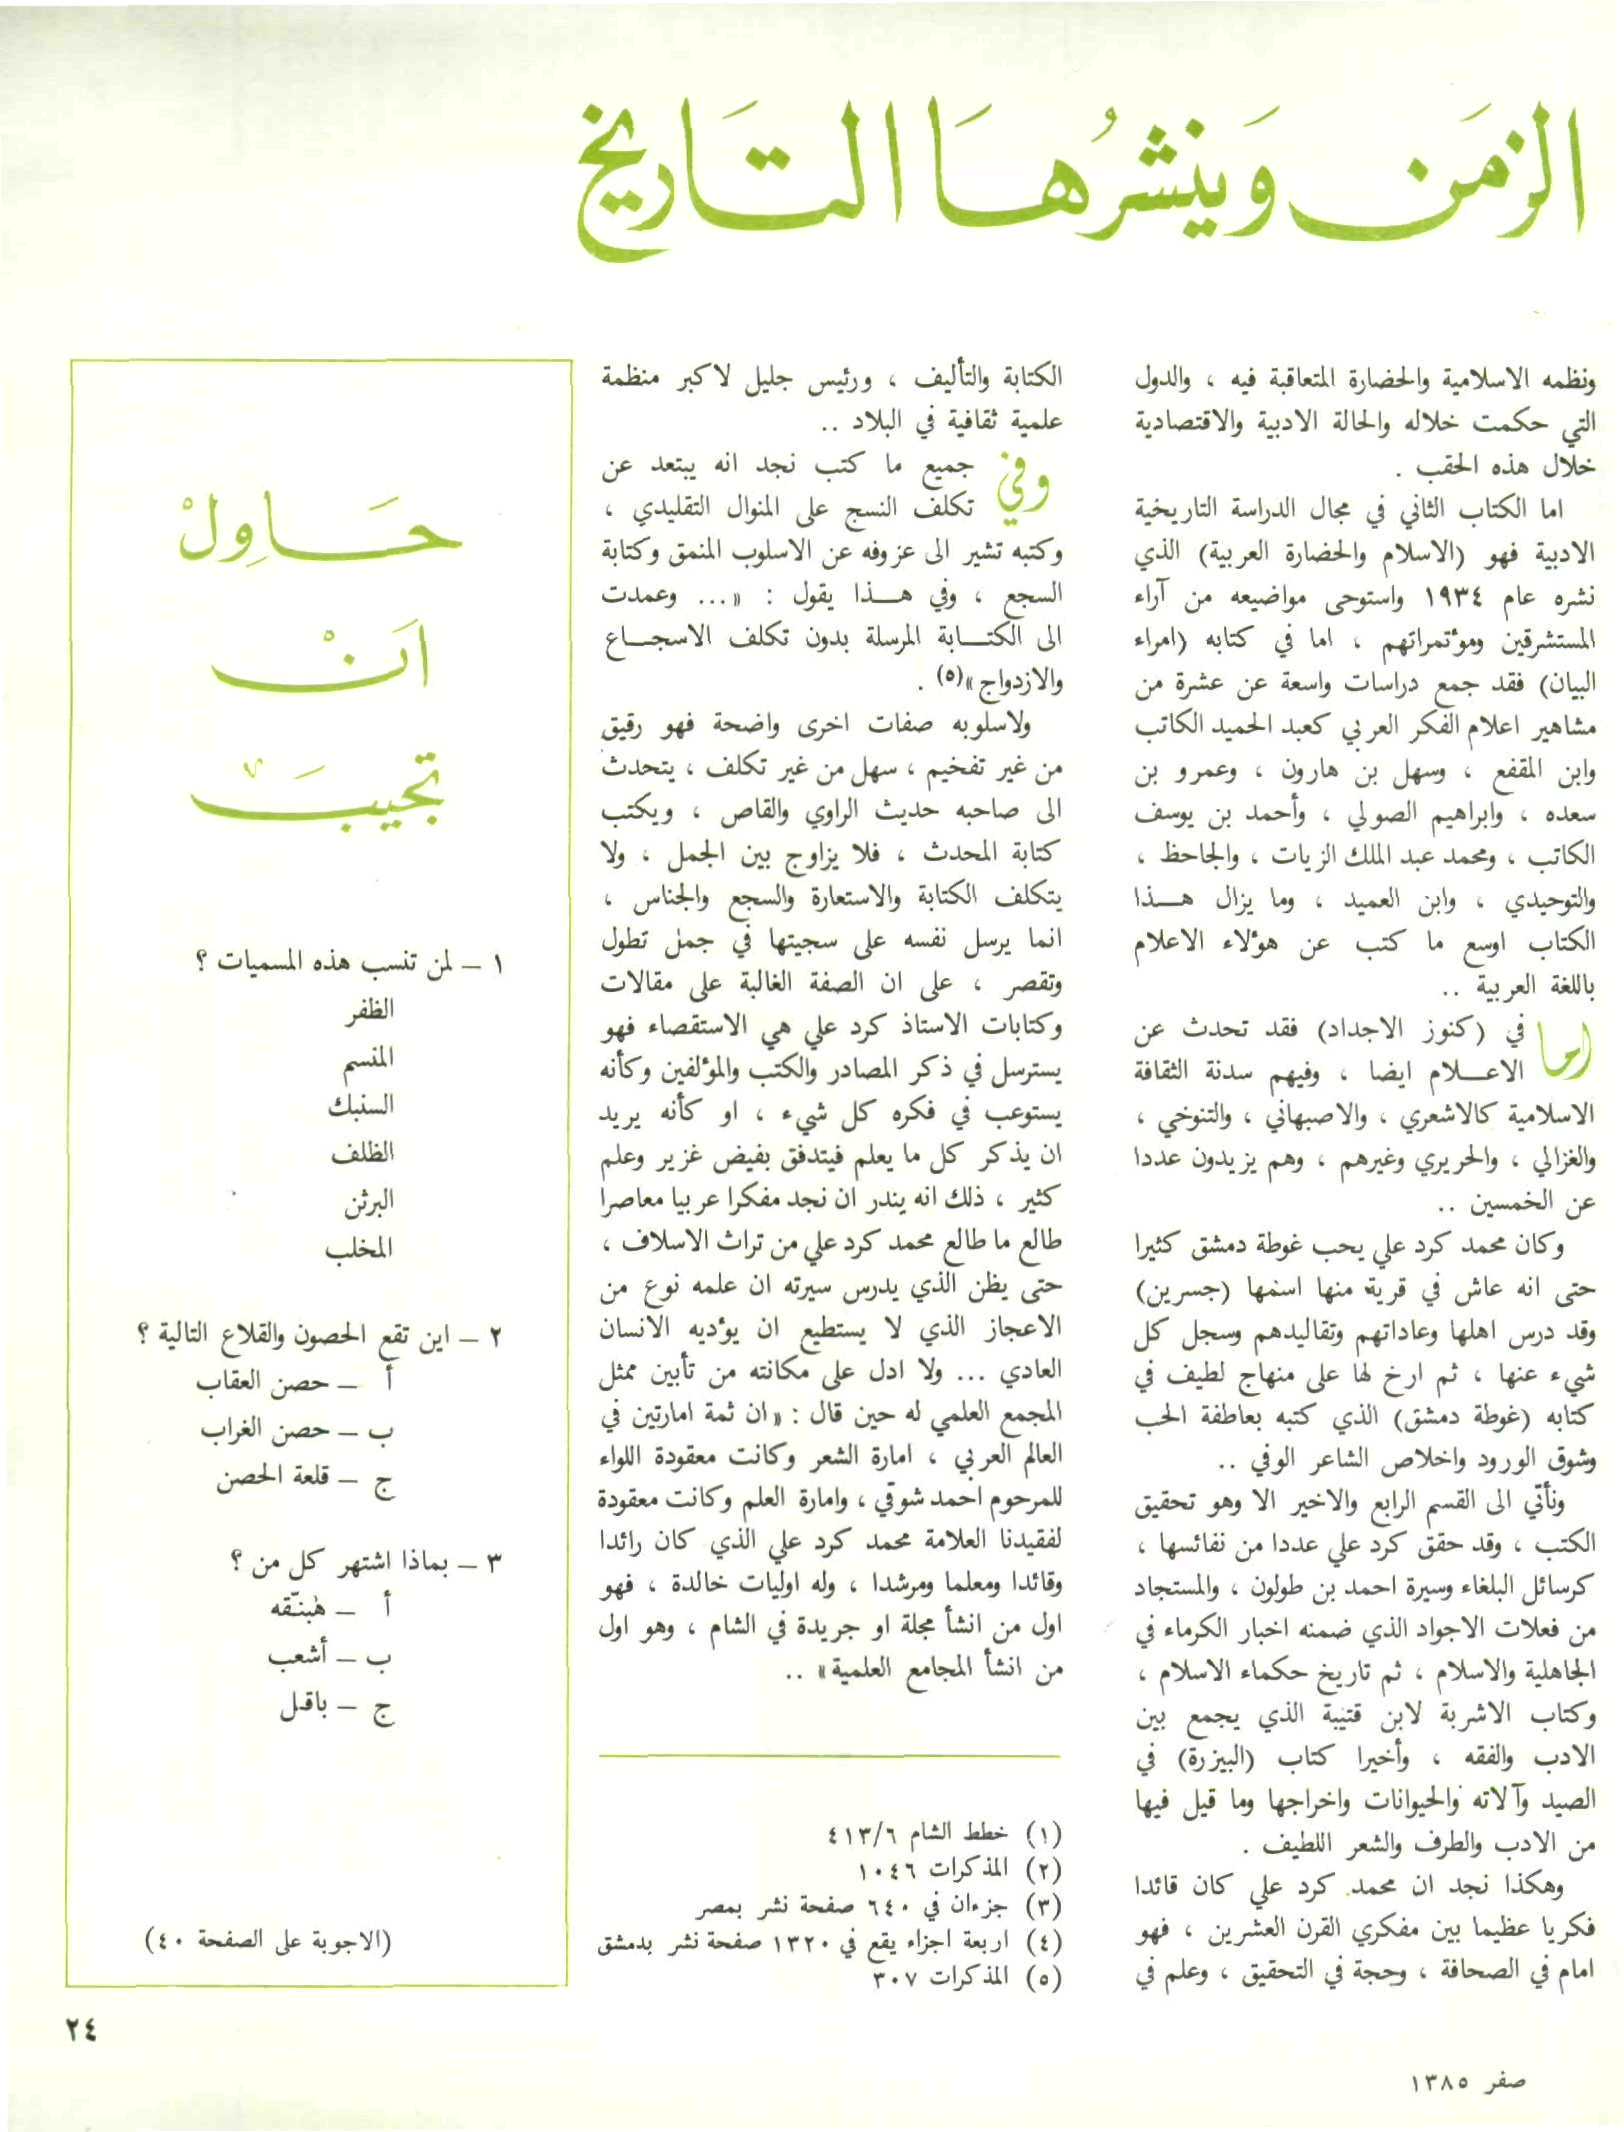 الزمَن وَينشرُهَا التَاريخ
ونظمه الاسلامية والحضارة المتعاقبة فيه ، والدول
التي حكمت خلاله والحالة الادبية والاقتصادية
خلال هذه الحقب .
اما الكتاب الثاني في مجال الدراسة التاريخية
الادبية فهو (الاسلام والحضارة العربية) الذي
نشره عام ١٩٣٤ واستوحى مواضيعه من آراء
المستشرقين ومؤتمراتهم ، اما في كتابه (امراء
البيان) فقد جمع دراسات واسعة عن عشرة من
مشاهير اعلام الفكر العربي كعبد الحميد الكاتب
وابن المقفع ، وسهل بن هارون ، وعمرو بن
سعده ، وابراهيم الصولي ، وأحمد بن يوسف
الكاتب ، ومحمد عبد الملك الزيات ، والجاحظ ،
والتوحيدي ، وابن العميد ، وما يزال هـذا
الكتاب اوسع ما كتب عن هؤلاء الاعلام
باللغة العربية ..
اما في (كنوز الاجداد) فقد تحدث عن
الاعـلام ايضا ، وفيهم سدنة الثقافة
الاسلامية كالاشعري ، والاصبهاني ، والتنوخي ،
والغزالي ، والحريري وغيرهم ، وهم يزيدون عددا
عن الخمسين ..
وكان محمد كرد علي يحب غوطة دمشق كثيرا
حتى انه عاش في قرية منها اسمها (جسرين)
وقد درس اهلها وعاداتهم وتقاليدهم وسجل كل
شيء عنها ، ثم ارخ لها على منهاج لطيف في
كتابه (غوطة دمشق) الذي كتبه بعاطفة الحب
وشوق الورود واخلاص الشاعر الوفي ..
ونأتي الى القسم الرابع والاخير الا وهو تحقيق
الكتب ، وقد حقق كرد علي عددا من نفائسها ،
كرسائل البلغاء وسيرة احمد بن طولون ، والمستجاد
من فعلات الاجواد الذي ضمنه اخبار الكرماء في
الجاهلية والاسلام ، ثم تاريخ حكماء الاسلام ،
وكتاب الاشربة لابن قتيبة الذي يجمع بين
الادب والفقه ، وأخيرا كتاب (البيزرة) في
الصيد وآلاته والحيوانات واخراجها وما قيل فيها
من الادب والطرف والشعر اللطيف .
وهكذا نجد ان محمد كرد علي كان قائدا
فكريا عظيما بين مفكري القرن العشرين ، فهو
امام في الصحافة ، وحجة في التحقيق ، وعلم في
الكتابة والتأليف ، ورئيس جليل لاكبر منظمة
علمية ثقافية في البلاد ..
وفي جميع ما كتب نجد انه يبتعد عن
تكلف النسج على المنوال التقليدي ،
وكتبه تشير الى عزوفه عن الاسلوب المنمق وكتابة
السجع ، وفي هـذا يقول : «... وعمدت
الى الكتـابة المرسلة بدون تكلف الاسجـاع
والازدواج»(٥) .
ولاسلوبه صفات اخرى واضحة فهو رقيق
من غير تفخيم ، سهل من غير تكلف ، يتحدث
الى صاحبه حديث الراوي والقاص ، ويكتب
كتابة المحدث ، فلا يزاوج بين الجمل ، ولا
يتكلف الكتابة والاستعارة والسجع والجناس ،
انما يرسل نفسه على سجيتها في جمل تطول
وتقصر ، على ان الصفة الغالبة على مقالات
وكتابات الاستاذ كرد علي هي الاستقصاء فهو
يسترسل في ذكر المصادر والكتب والمؤلفين وكأنه
يستوعب في فكره كل شيء ، او كأنه يريد
ان يذكر كل ما يعلم فيتدفق بفيض غزير وعلم
كثير ، ذلك انه يندر ان نجد مفكرا عربيا معاصرا
طالع ما طالع محمد كرد علي من تراث الاسلاف ،
حتى يظن الذي يدرس سيرته ان علمه نوع من
الاعجاز الذي لا يستطيع ان يؤديه الانسان
العادي ... ولا ادل على مكانته من تأبين ممثل
المجمع العلمي له حين قال : «ان ثمة امارتين في
العالم العربي ، امارة الشعر وكانت معقودة اللواء
للمرحوم احمد شوقي ، وامارة العلم وكانت معقودة
لفقيدنا العلامة محمد كرد علي الذي كان رائدا
وقائدا ومعلما ومرشدا ، وله اوليات خالدة ، فهو
اول من انشأ مجلة او جريدة في الشام ، وهو اول
من انشأ المجامع العلمية» ..
(١) خطط الشام ٤١٣/٦
(٢) المذكرات ١٠٤٦
(٣) جزءان في ٦٤٠ صفحة نشر بمصر
(٤) اربعة اجزاء يقع في ١٣٢٠ صفحة نشر بدمشق
(٥) المذكرات ٣٠٧
حَـاوِلْ
اَنْ
تجيبَ
١ – لمن تنسب هذه المسميات ؟
الظفر
المنسم
السنبك
الظلف
البرثن
المخلب
٢ – اين تقع الحصون والقلاع التالية ؟
أ – حصن العقاب
ب – حصن الغراب
ج – قلعة الحصن
٣ – بماذا اشتهر كل من ؟
أ – هبنّقه
ب – أشعب
ج – باقل
(الاجوبة على الصفحة ٤٠)
٢٤
صفر ١٣٨٥